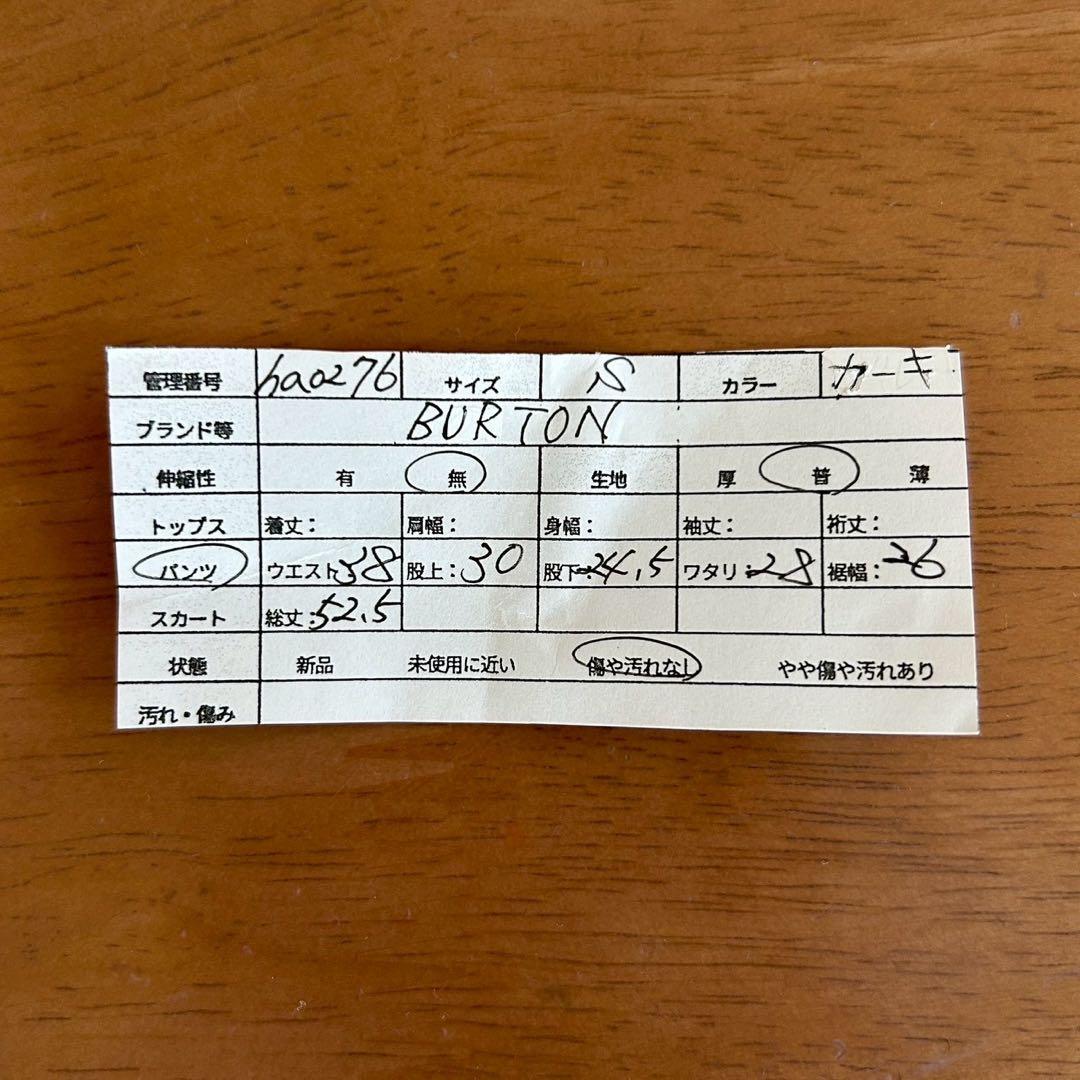 管理番号 hao276 サイズ S カラー カーキ
ブランド等 BURTON
伸縮性 有 無 生地 厚 普 薄
トップス 着丈: 肩幅: 身幅: 袖丈: 裄丈:
パンツ ウエスト:38 股上:30 股下:24.5 ワタリ:28 裾幅:26
スカート 総丈:52.5
状態 新品 未使用に近い 傷や汚れなし やや傷や汚れあり
汚れ・傷み